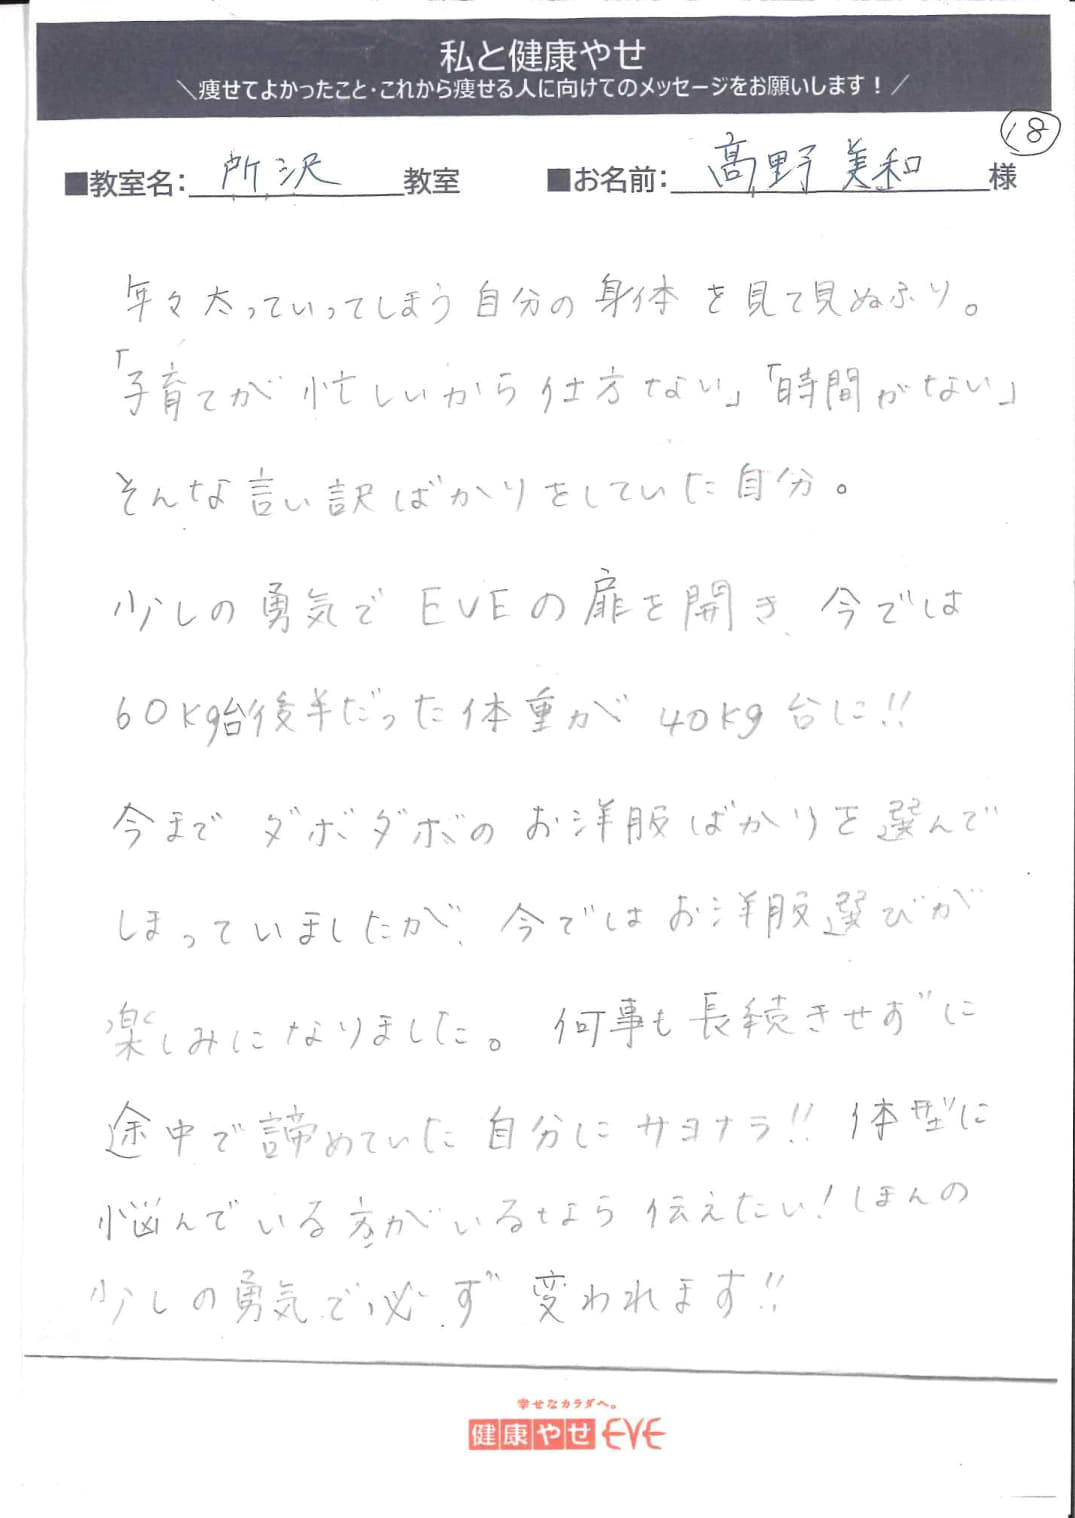 私と健康やせ
＼痩せてよかったこと・これから痩せる人に向けてのメッセージをお願いします！／
18
■教室名：所沢教室　■お名前：髙野美和様
年々太っていってしまう自分の身体を見て見ぬふり。
「子育てが忙しいから仕方ない」「時間がない」
そんな言い訳ばかりをしていた自分。
少しの勇気でEVEの扉を開き、今では
60kg台後半だった体重が40kg台に!!
今までダボダボのお洋服ばかりを選んで
しまっていましたが、今ではお洋服選びが
楽しみになりました。何事も長続きせずに
途中で諦めていた自分にサヨナラ!!体型に
悩んでいる方がいるなら伝えたい!ほんの
少しの勇気で必ず変われます!!
幸せなカラダへ。
健康やせEVE